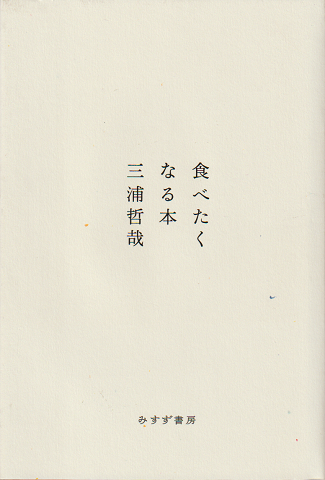 食べたく
なる本
三浦哲哉
みすず書房